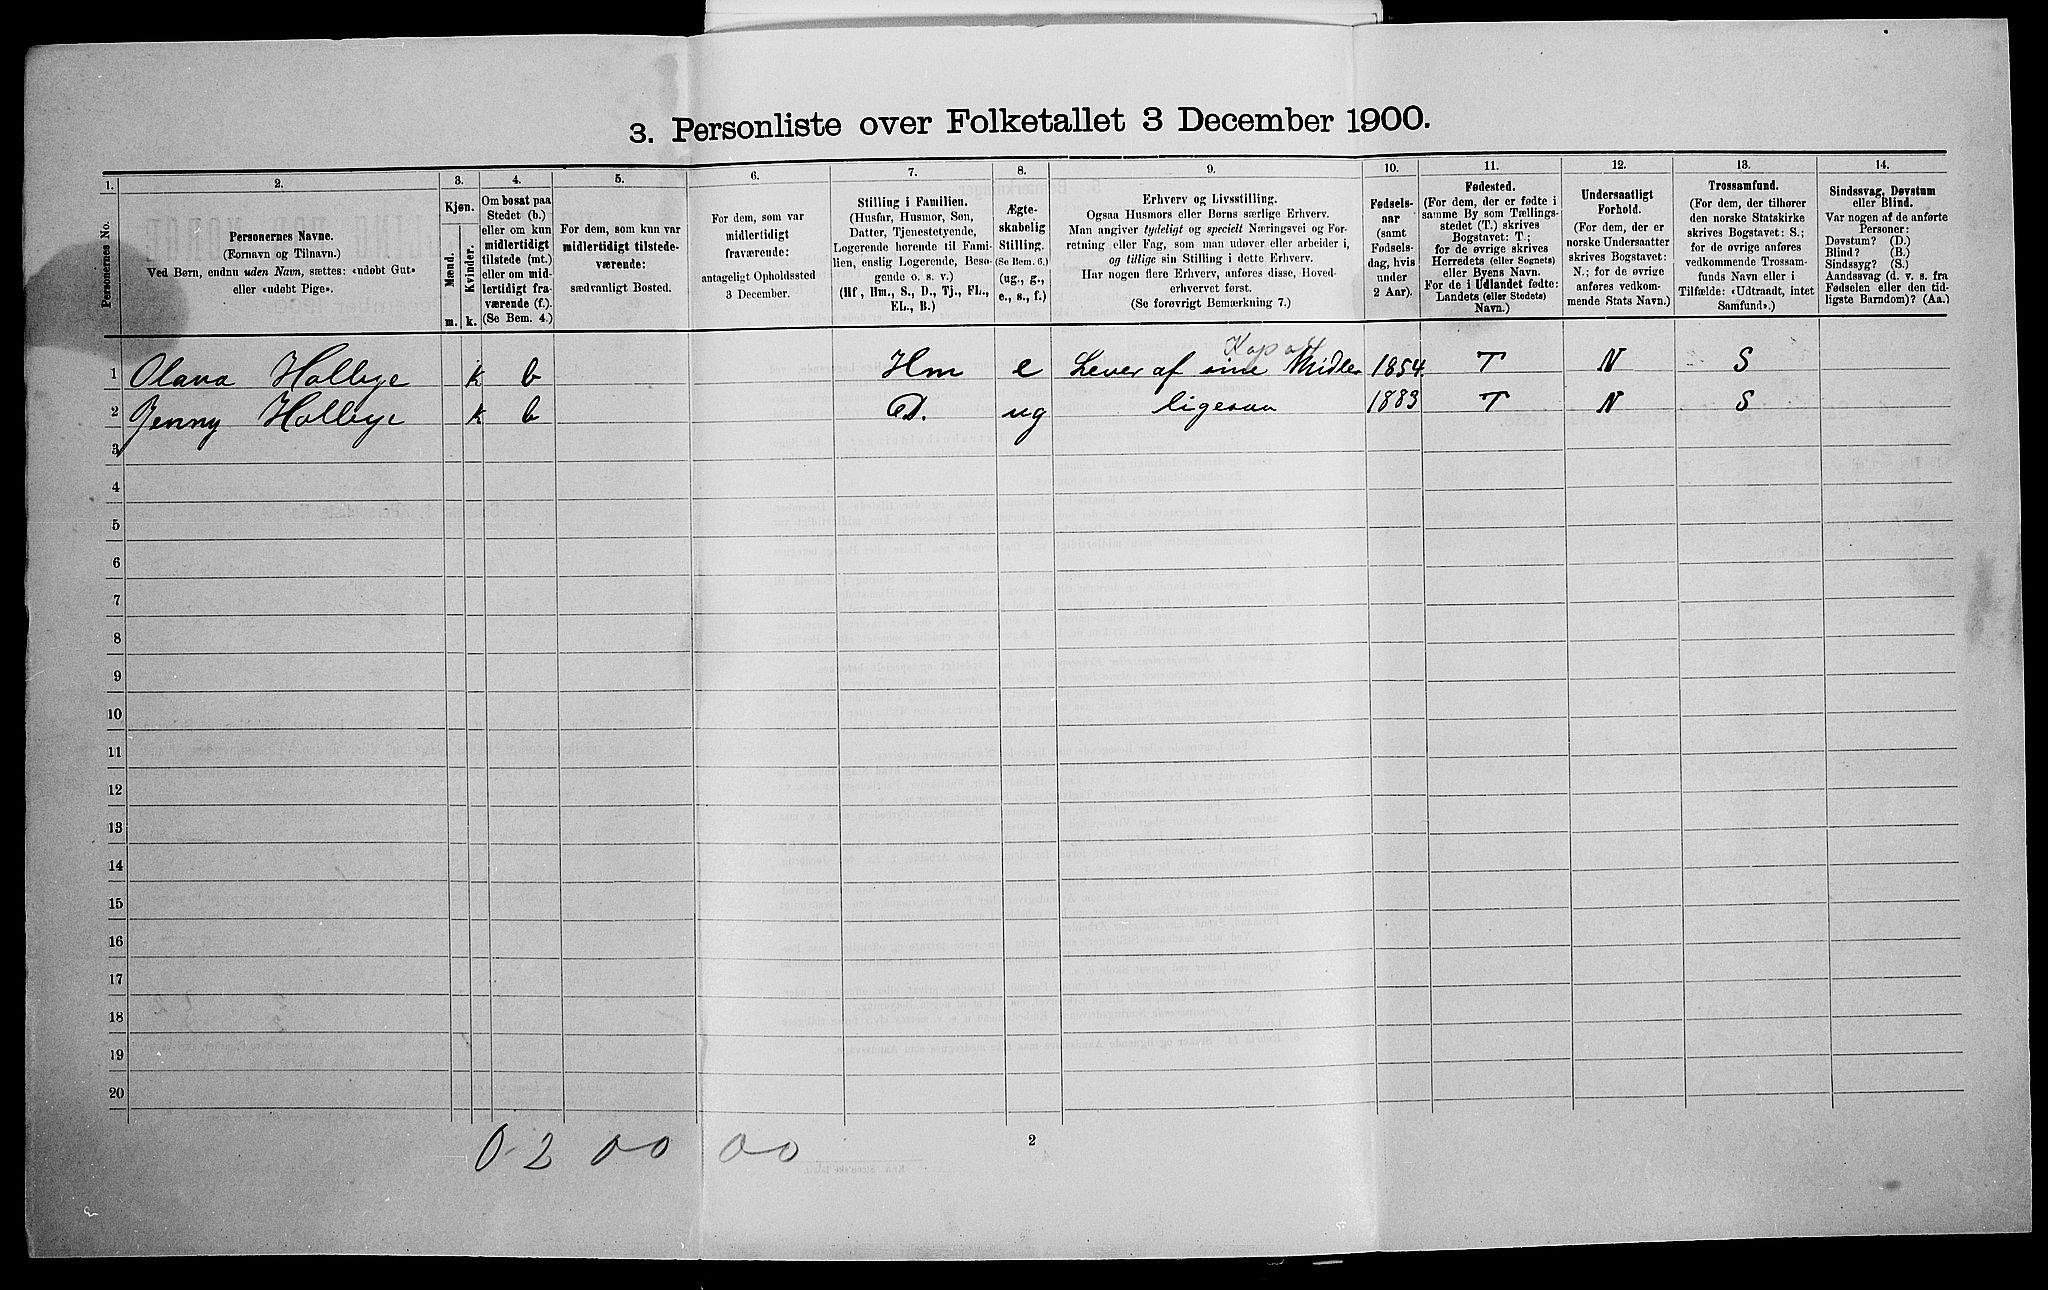 3. Personliste over Folketallet 3 December 1900.
1. 2. 3. 4. 5. 6. 7. 8. 9. 10. 11. 12. 13. 14.
Personernes No.
Personernes Navne.
(Fornavn og Tilnavn.)
Ved Børn, endnu uden Navn, sættes: «udøbt Gut»
eller «udøbt Pige».
Kjøn.
Mænd. Kvinder.
m. k.
Om bosat paa
Stedet (b.)
eller om kun
midlertidigt
tilstede (mt.)
eller om mid-
lertidigt fra-
værende (f.).
(Se Bem. 4.)
For dem, som kun var
midlertidigt tilstede-
værende:
sædvanligt Bosted.
For dem, som var
midlertidigt
fraværende:
antageligt Opholdssted
3 December.
Stilling i Familien.
(Husfar, Husmor, Søn,
Datter, Tjenestetyende,
Logerende hørende til Fami-
lien, enslig Logerende, Besø-
gende o. s. v.)
(Hf, Hm., S., D., Tj., FL.,
EL., B.)
Ægte-
skabelig
Stilling.
(Se Bem. 6.)
(ug., g.,
e., s., f.)
Erhverv og Livsstilling.
Ogsaa Husmors eller Børns særlige Erhverv.
Man angiver tydeligt og specielt Næringsvei og For-
retning eller Fag, som man udøver eller arbeider i,
og tillige sin Stilling i dette Erhverv.
Har nogen flere Erhverv, anføres disse, Hoved-
erhvervet først.
(Se forøvrigt Bemærkning 7.)
Fødsels-
aar
(samt
Fødsels-
dag, hvis
under
2 Aar).
Fødested.
(For dem, der er fødte i
samme By som Tællings-
stedet (T.) skrives
Bogstavet: T;
for de øvrige skrives
Herredets (eller Sognets)
eller Byens Navn.
For de i Udlandet fødte:
Landets (eller Stedets)
Navn.)
Undersaatligt
Forhold.
(For dem, der er
norske Undersaatter
skrives Bogstavet:
N.; for de øvrige
anføres vedkom-
mende Stats Navn.)
Trossamfund.
(For dem, der tilhører
den norske Statskirke
skrives Bogstavet: S.;
for de øvrige anføres
vedkommende Trossam-
funds Navn eller i
Tilfælde: «Udtraadt, intet
Samfund».)
Sindssvag, Døvstum
eller Blind.
Var nogen af de anførte
Personer:
Døvstum? (D.)
Blind? (B.)
Sindssyg? (S.)
Aandssvag (d. v. s. fra
Fødselen eller den tid-
ligste Barndom)? (Aa.)
1 Olava Holbye k b Hm e Lever af sine Midler 1854. T N S
2 Jenny Holbye k b D. ug ligesaa 1883 T N S
3
4
5
6
7
8
9
10
11
12
13
14
15
16
17
18
19
20
0. 2 00 00
2